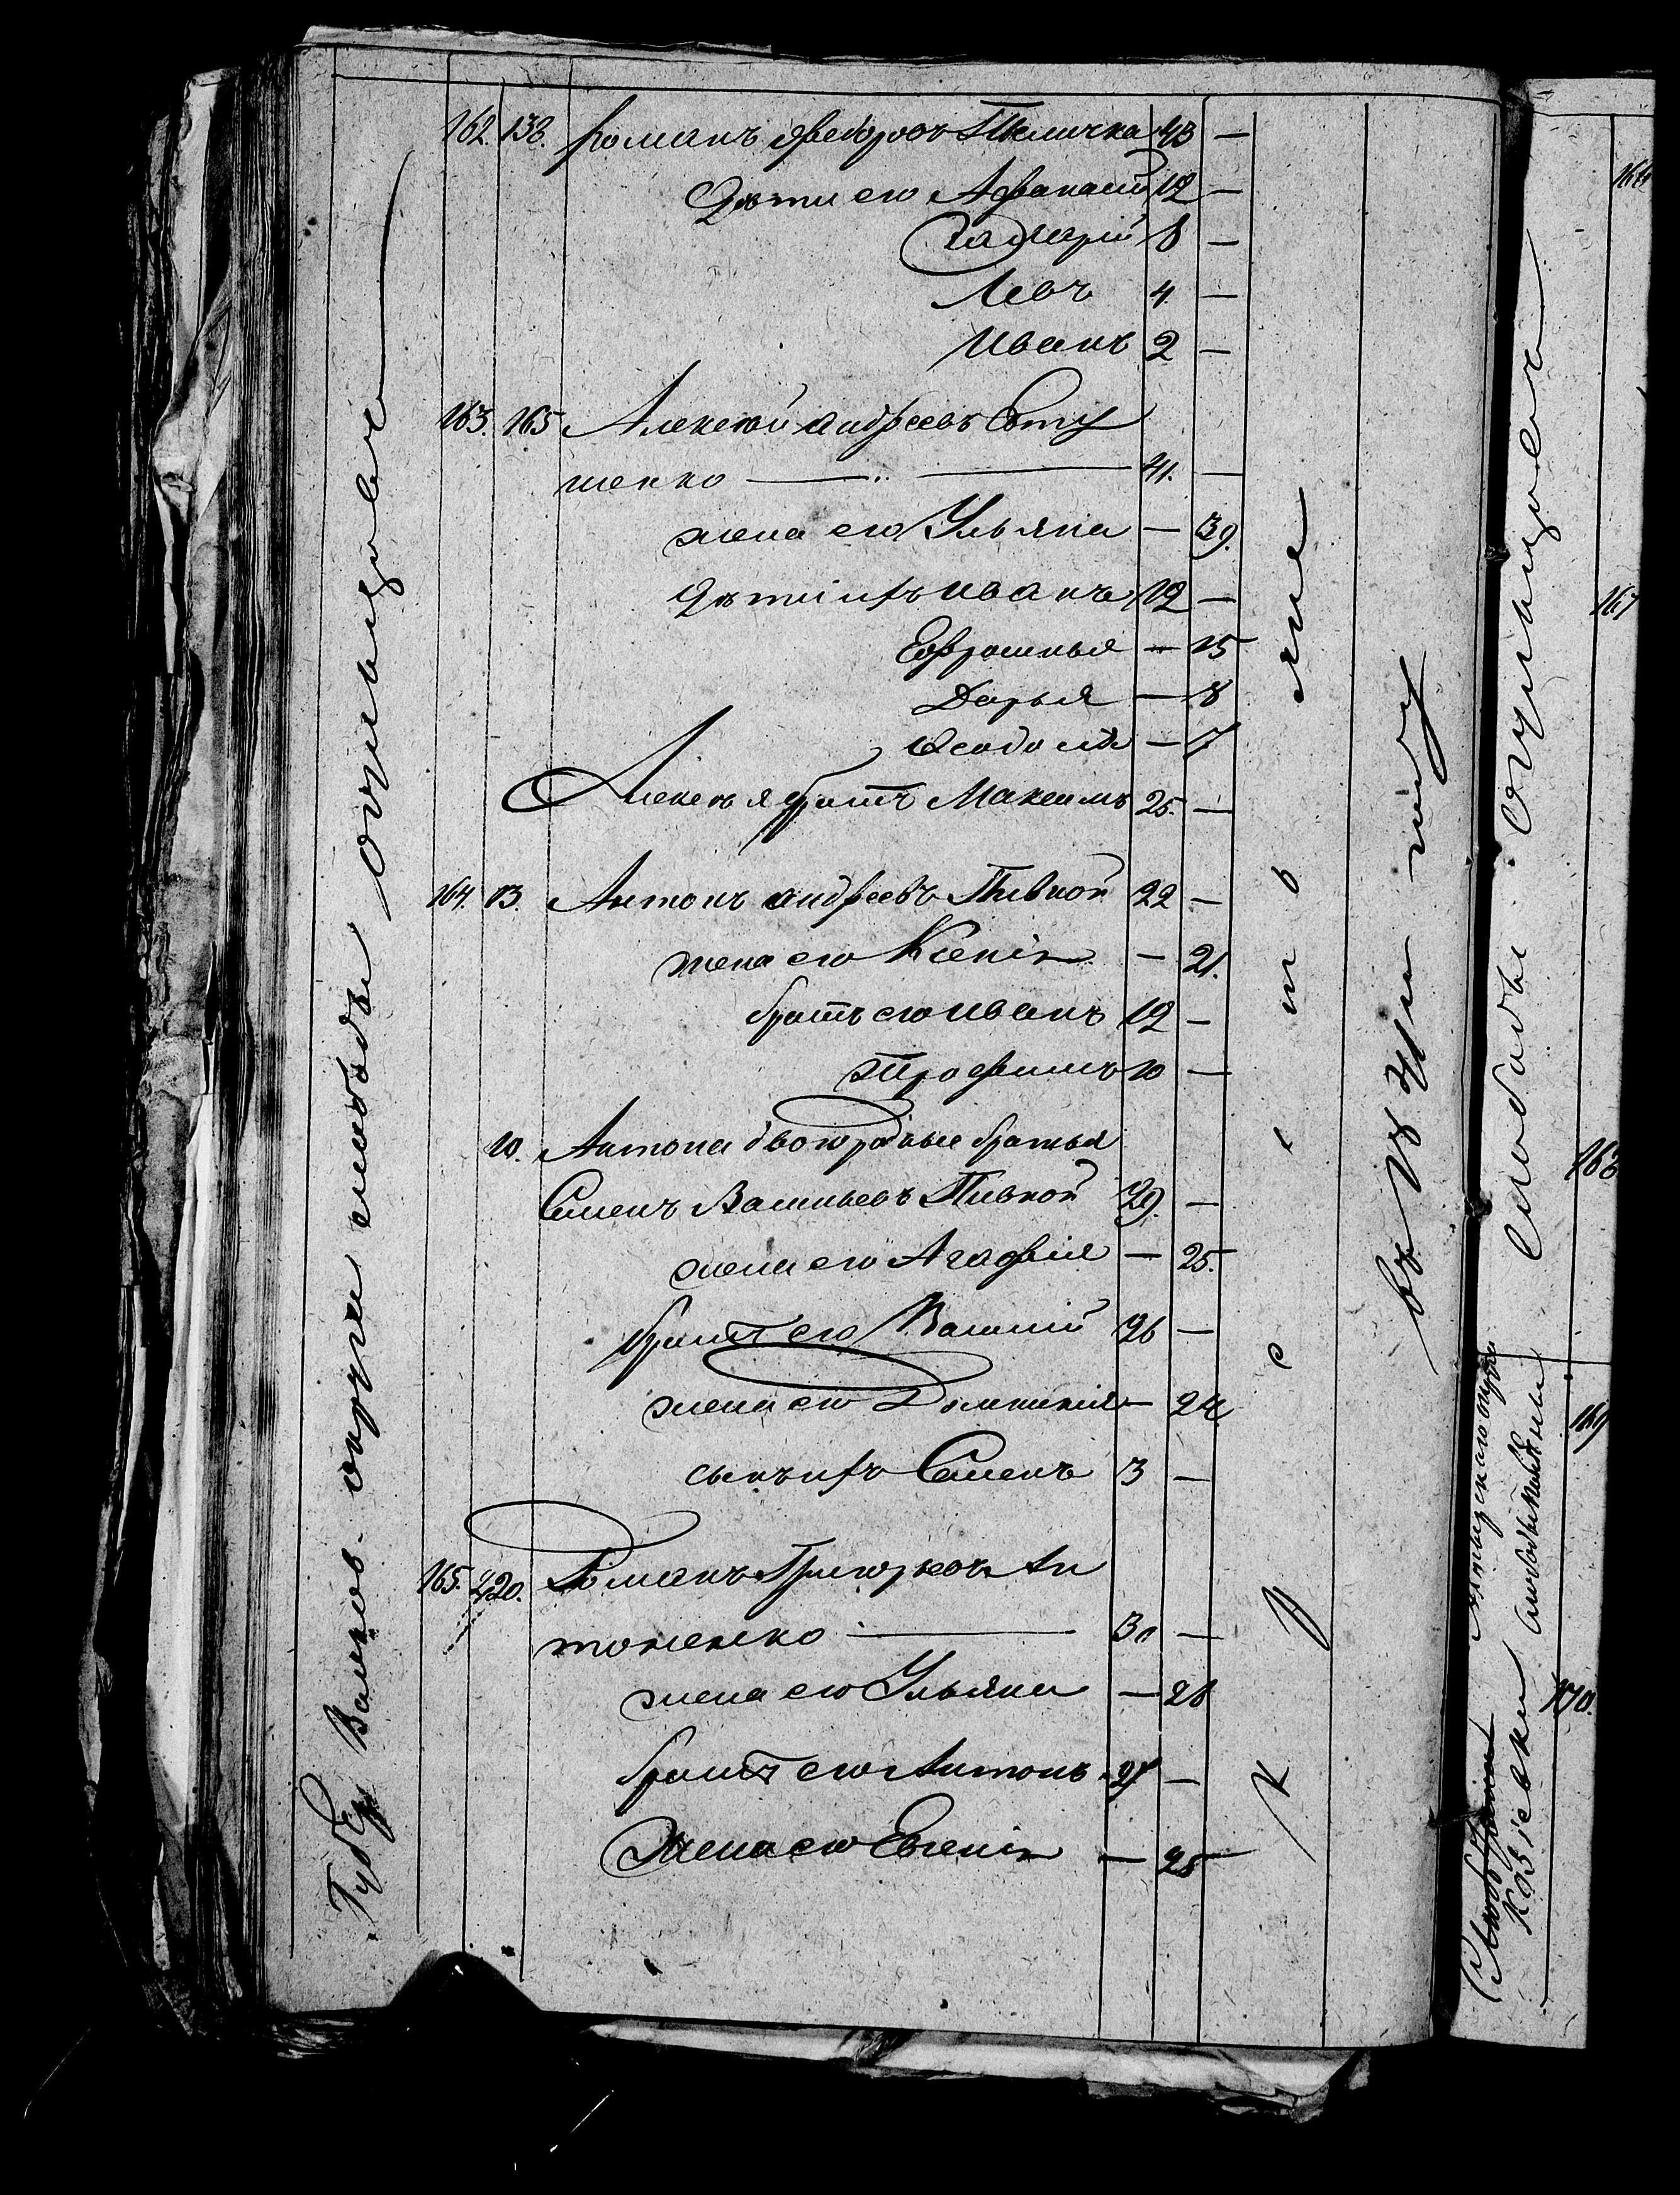 162. 138. Романъ Ѳедоровъ Теличка 43 —
Дѣти его Афанасій 12 —
8 —
Левъ 4 —
Иванъ 2 —
163. 165 Алексѣй Андреевъ Евту
шенко — 41. —
жена его Ульяна — 39.
Дѣти ихъ Иванъ 12 —
Евфросинья — 15
Дарья — 8
Ѳеодосія — 7
Алексѣя братъ Максимъ 25. —
164. 13. Антонъ Андреевъ Пивной 22 —
жена его Ксенія — 21.
братъ его Иванъ 12 —
Трофимъ 10 —
10. Антона двоюродные братья
Семенъ Васильевъ Пивной 29. —
жена его Агафія — 25.
братъ его Василій 26 —
жена его Домникія — 24
сынъ ихъ Семенъ 3 —
165. 220. Романъ Григорьевъ Ан
тоненко — 30 —
жена его Ульяна — 28
братъ его Антонъ 27 —
Жена его Евгенія — 25
Валков. округи слободы
Крестьяне
въ
слободы
Козіевки
166
167
168
169
170.